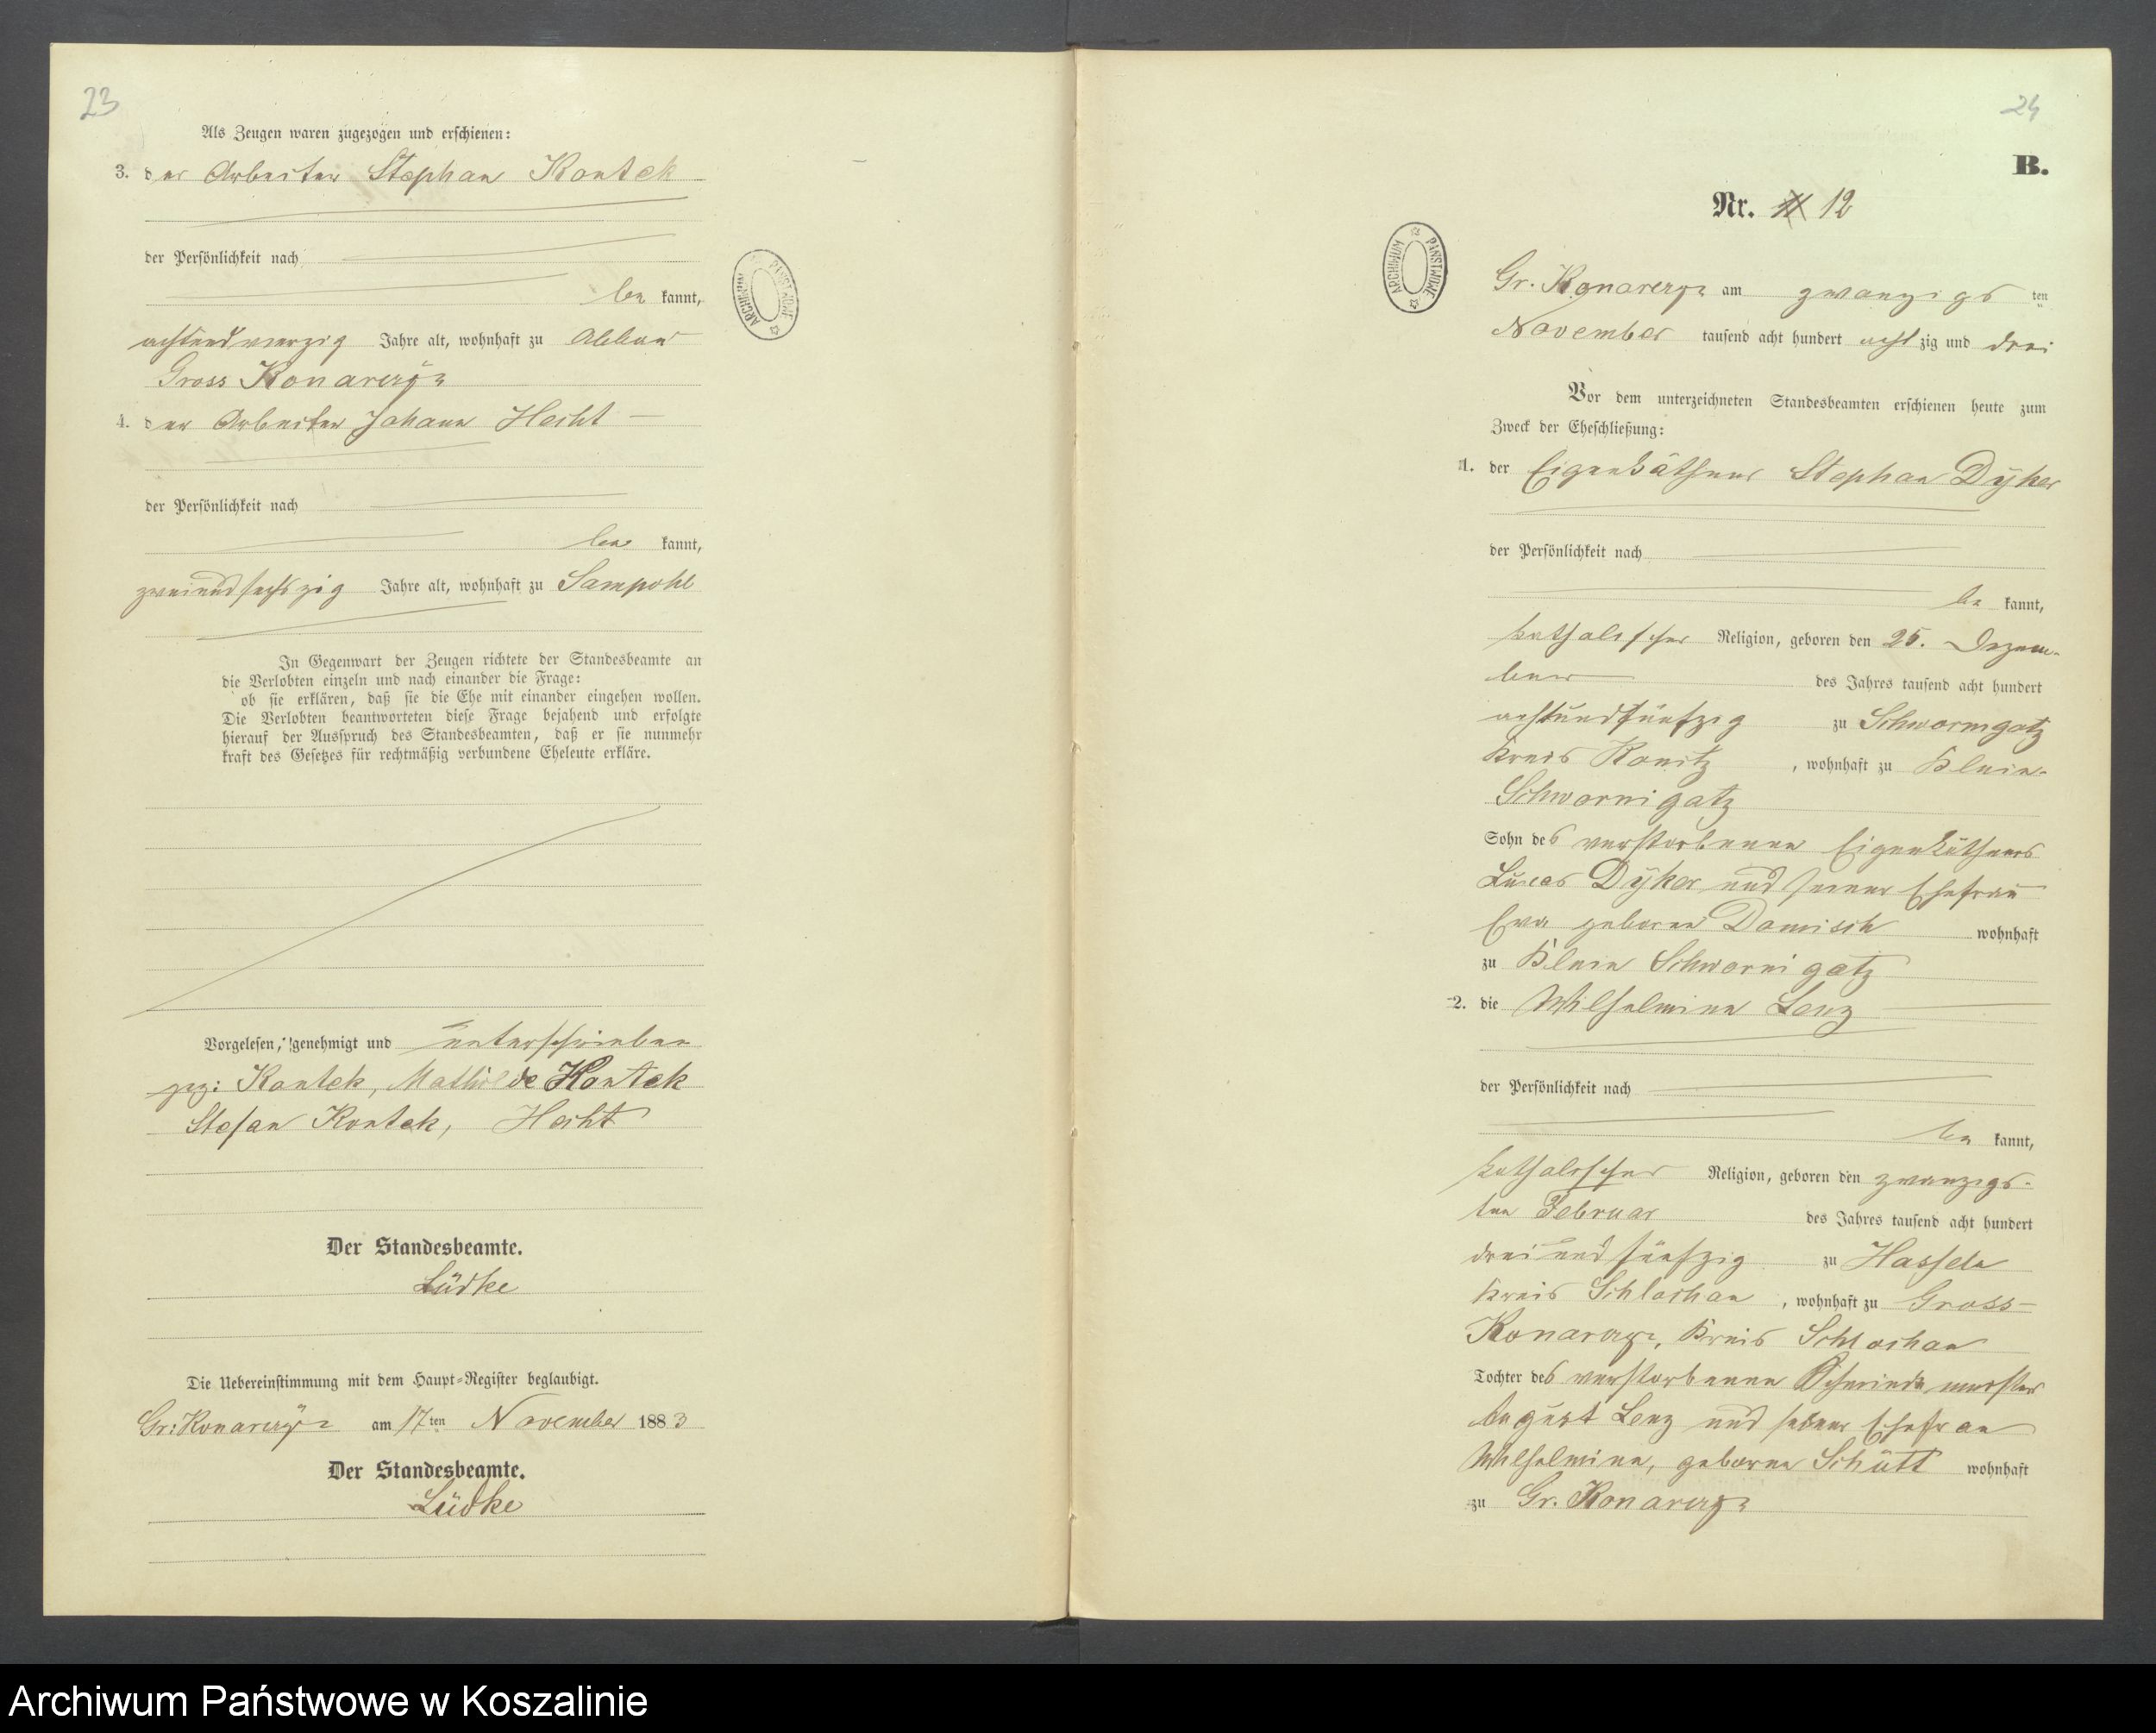 23
Als Zeugen waren zugezogen und erschienen:
3. der Arbeiter Stephan Kontek
der Persönlichkeit nach
be kannt,
achtundvierzig Jahre alt, wohnhaft zu Abbau
Gross Konarczyn
4. der Arbeiter Johann Hecht
der Persönlichkeit nach
be kannt,
zweiundsechszig Jahre alt, wohnhaft zu Sampohl
In Gegenwart der Zeugen richtete der Standesbeamte an
die Verlobten einzeln und nach einander die Frage:
ob sie erklären, daß sie die Ehe mit einander eingehen wollen.
Die Verlobten beantworteten diese Frage bejahend und erfolgte
hierauf der Ausspruch des Standesbeamten, daß er sie nunmehr
kraft des Gesetzes für rechtmäßig verbundene Eheleute erkläre.
Vorgelesen, genehmigt und unterschrieben
gez: Kontek, Mathilde Kontek
Stefan Kontek, Hecht
Der Standesbeamte.
Lüdke
Die Uebereinstimmung mit dem Haupt-Register beglaubigt.
Gr: Konarczyn am 17ten November 1883
Der Standesbeamte.
Lüdke
ARCHIWUM PAŃSTWOWE
24
B.
Nr. 12
ARCHIWUM PAŃSTWOWE
Gr. Konarczyn am zwanzigsten
November tausend acht hundert achtzig und drei
Vor dem unterzeichneten Standesbeamten erschienen heute zum
Zweck der Eheschließung:
1. der Eigenkäthner Stephan Dyker
der Persönlichkeit nach
be kannt,
katholischer Religion, geboren den 25. Dezem-
ber des Jahres tausend acht hundert
achtundfünfzig zu Schwornigatz
Kreis Konitz, wohnhaft zu Klein-
Schwornigatz
Sohn des verstorbenen Eigenkäthners
Lucas Dyker und seiner Ehefrau
Eva geborne Domisch wohnhaft
zu Klein Schwornigatz
2. die Wilhelmine Lenz
der Persönlichkeit nach
be kannt,
katholischer Religion, geboren den zwanzigs-
ten Februar des Jahres tausend acht hundert
dreiundfünfzig zu Hasseln
Kreis Schlochau, wohnhaft zu Gross-
Konarczyn, Kreis Schlochau
Tochter des verstorbenen Schmiedemeister
August Lenz und seiner Ehefrau
Wilhelmine, geborne Schütt wohnhaft
zu Gr. Konarczyn
Archiwum Państwowe w Koszalinie